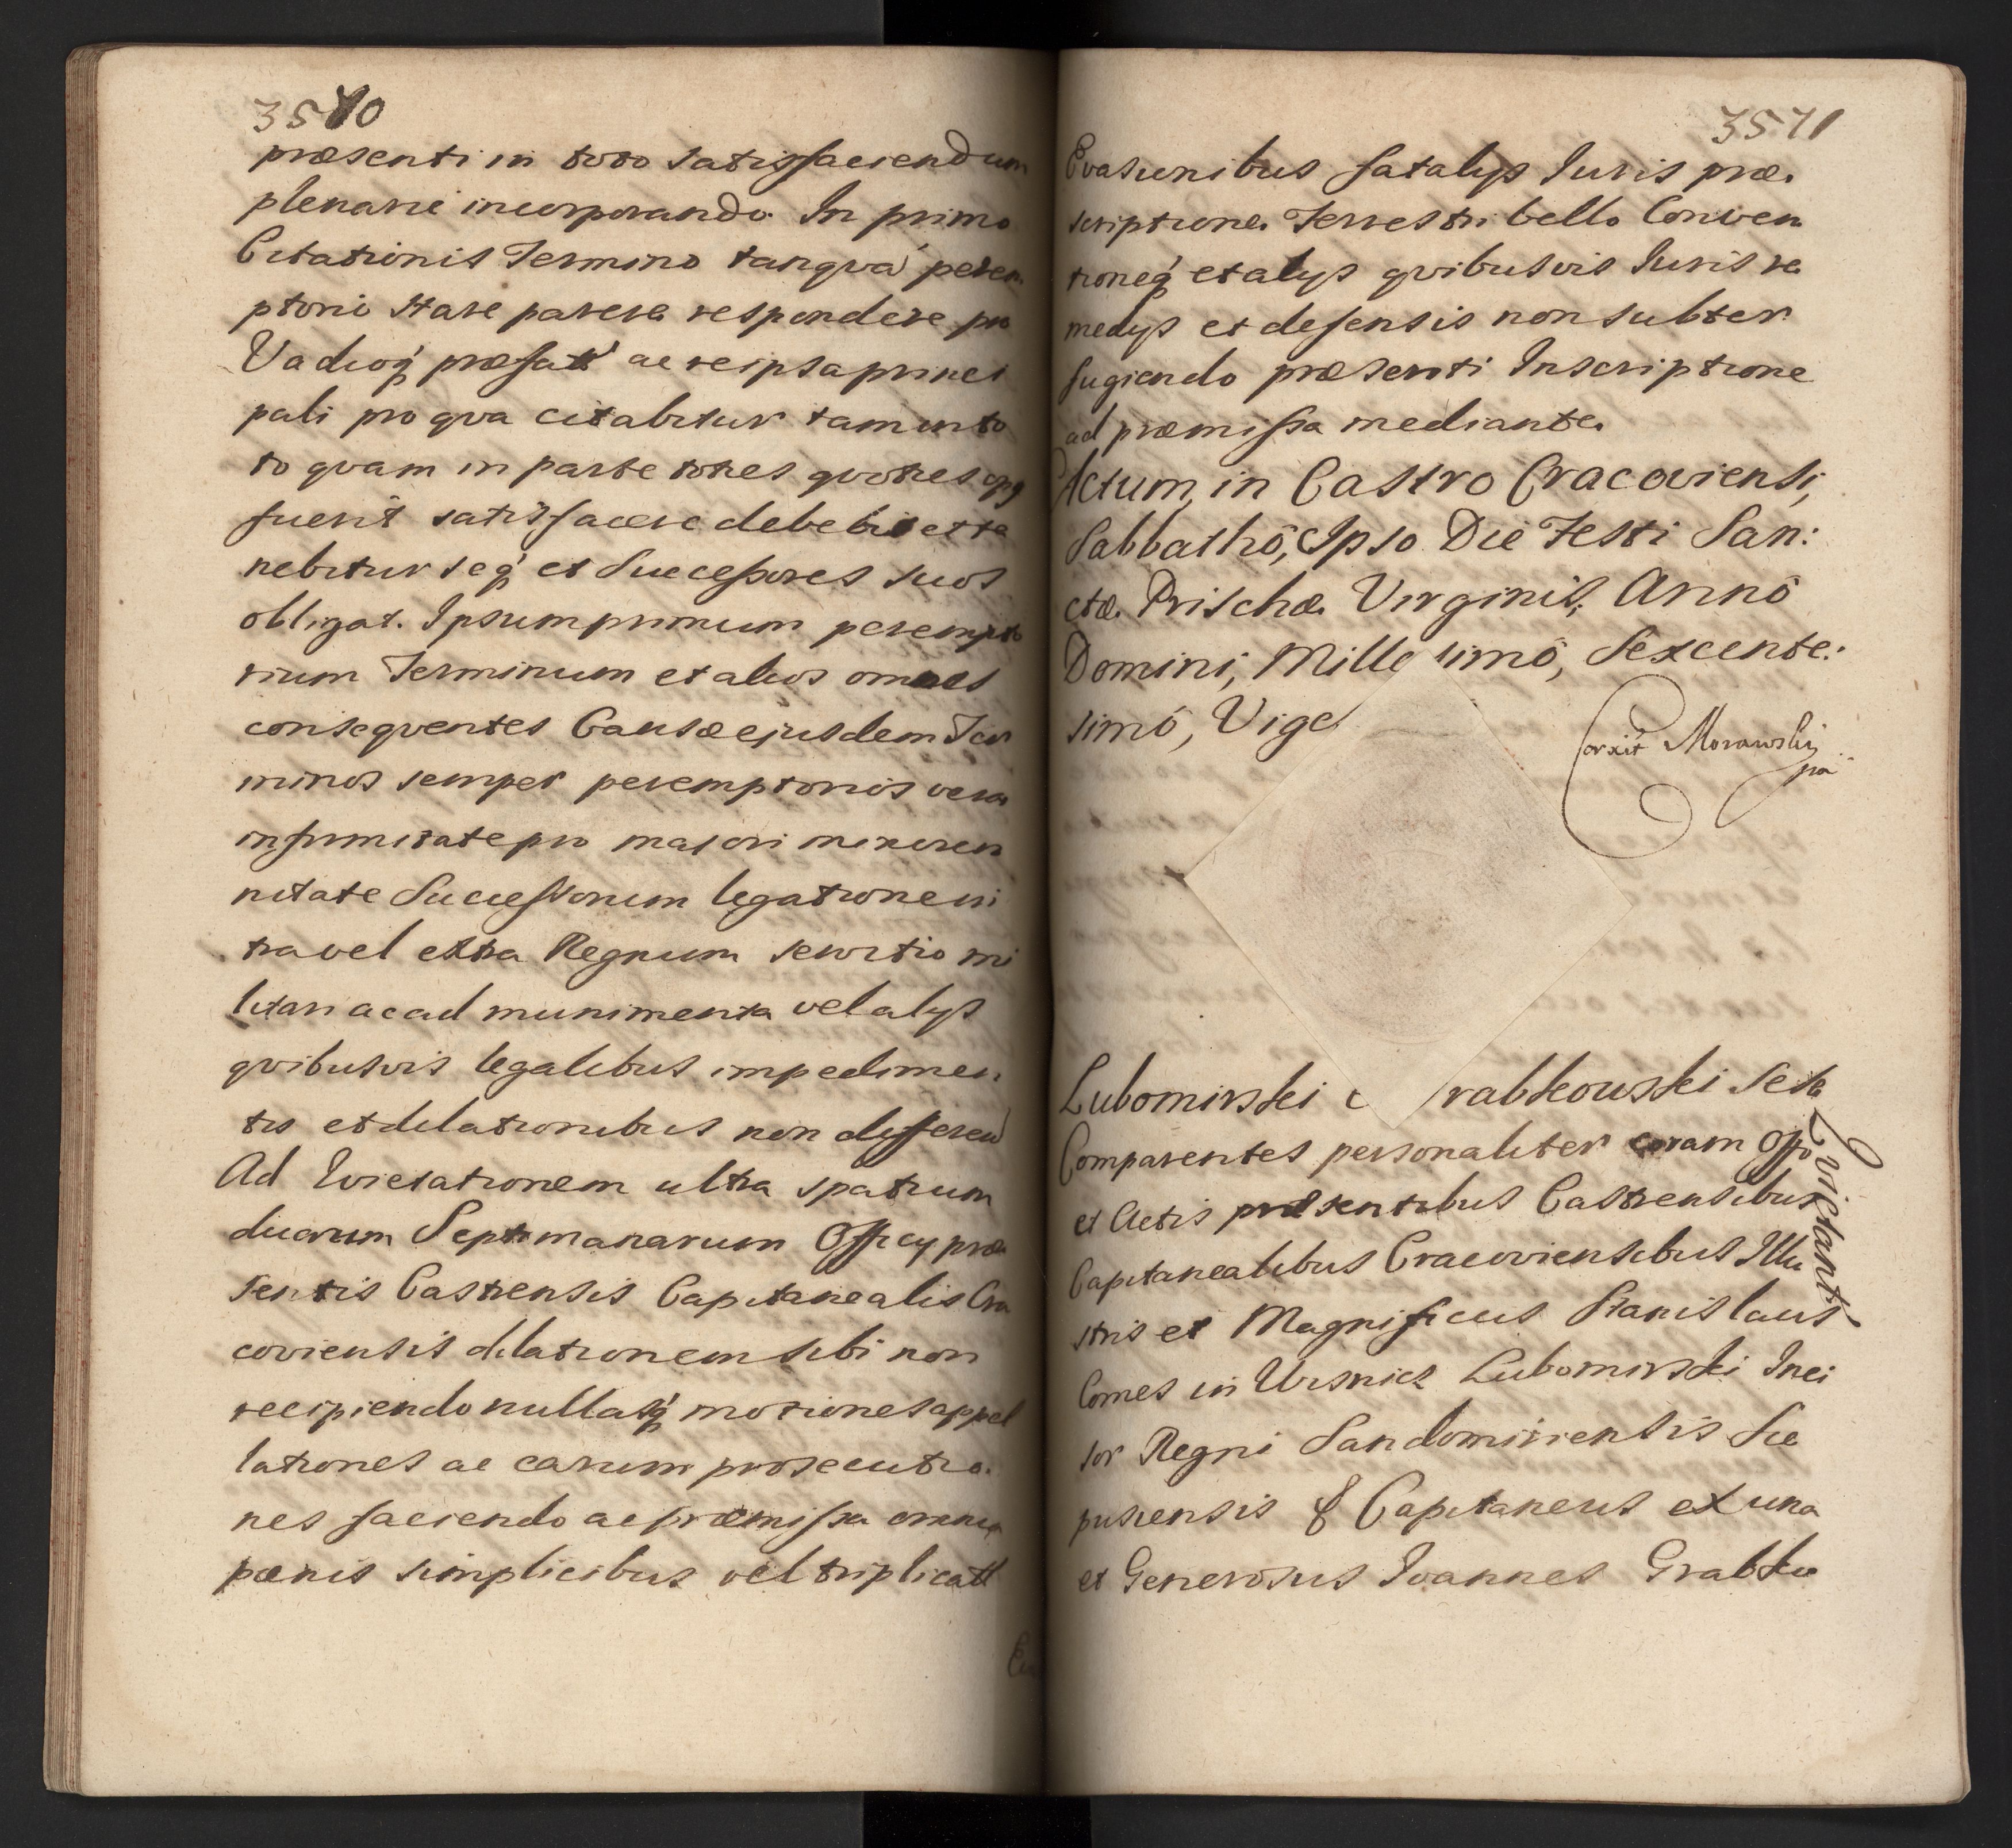 3570
præsenti in toto satisfaciendum
plenarie incorporando. In primo
Citationis Termino tanqva' perem
ptorio stare parere respondere pro
Vadioq' præfato ac reipsa princi
pali pro qva citabitur tam in to
to qvam in parte toties qvoties opq
fuerit satisfacere debebit et te
nebitur seq' et Successores suos
obligat. Ipsum primum perempto
rium Terminum et alios omnes
conseqventes Causæ ejusdem Ter
minos semper peremptorios vera
infirmitate pro majori minoren
nitate Successorum legatione in
tra vel extra Regnum servitio mi
litari ac ad munimenta vel alijs
qvibusvis legalibus impedimen
tis et dilationibus non differen
Ad Evictationem ultra spatium
duarum Septimanarum Officij præ
sentis Castrensis Capitanealis Cra
coviensis dilationem sibi non
recipiendo nullasq' motiones appel
lationes ac earum prosecutio
nes faciendo ac præmissa omnia
pænis simplicibus vel triplicatt
3571
Evasionibus fatalijs Iuris præ
scriptione Terrestri bello Conven
tioneq' et alijs qvibusvis Iuris re
medijs et defensis non subter
fugiendo præsenti Inscriptione
ad præmissa mediante.
Actum, in Castro Cracoviensi,
Sabbathô, Ipso Die Festi San:
ctæ Prischæ Virginis, Annô
Domini, Mille simô, Sexcente:
simô, Vige
Corxit Morawskj
pa
Lubomirski rabkowski sese
Evictant
Comparentes personaliter coram Offo
et Actis præsentibus Castrensibus
Capitanealibus Cracoviensibus Illu
stris et Magnificus Stanislaus
Comes in Wisnicz Lubomirski Inci
sor Regni Sandomiriensis Sce
pusiensis & Capitaneus ex una
et Generosus Ioannes Grabko